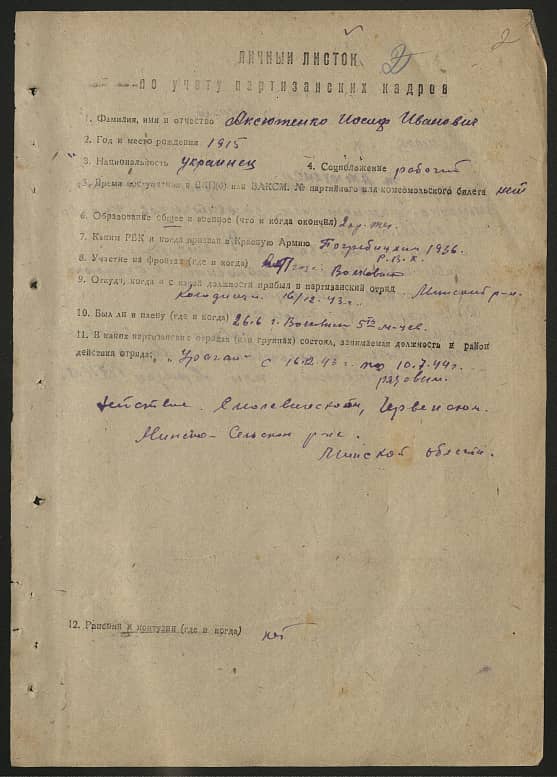 2
ЛИЧНЫЙ ЛИСТОК
по учету партизанских кадров
1. Фамилия, имя и отчество Аксюженко Иосиф Иванович
2. Год и место рождения 1915
3. Национальность украинец 4. Соцположение рабочий
5. Время вступления в ВКП(б) или ВЛКСМ. № партийного или комсомольского билета нет
6. Образование общее и военное (что и когда окончил)
7. Каким РВК и когда призван в Красную Армию Погребищким 1936.
Р.В.К.
8. Участие на фронтах (где и когда)
9. Откуда, когда и с какой должности прибыл в партизанский отряд Минский р-н.
16/12.43 г.
10. Был ли в плену (где и когда) 26.6
11. В каких партизанских отрядах (или группах) состоял, занимаемая должность и район
действия отряда: "Ураган" с 16.12.43 г. по 10.7.44 г.
рядовым.
действие. Смолевическом, Червенском.
Минско-Сельском р-не.
Минской области.
12. Ранения и контузии (где и когда) нет